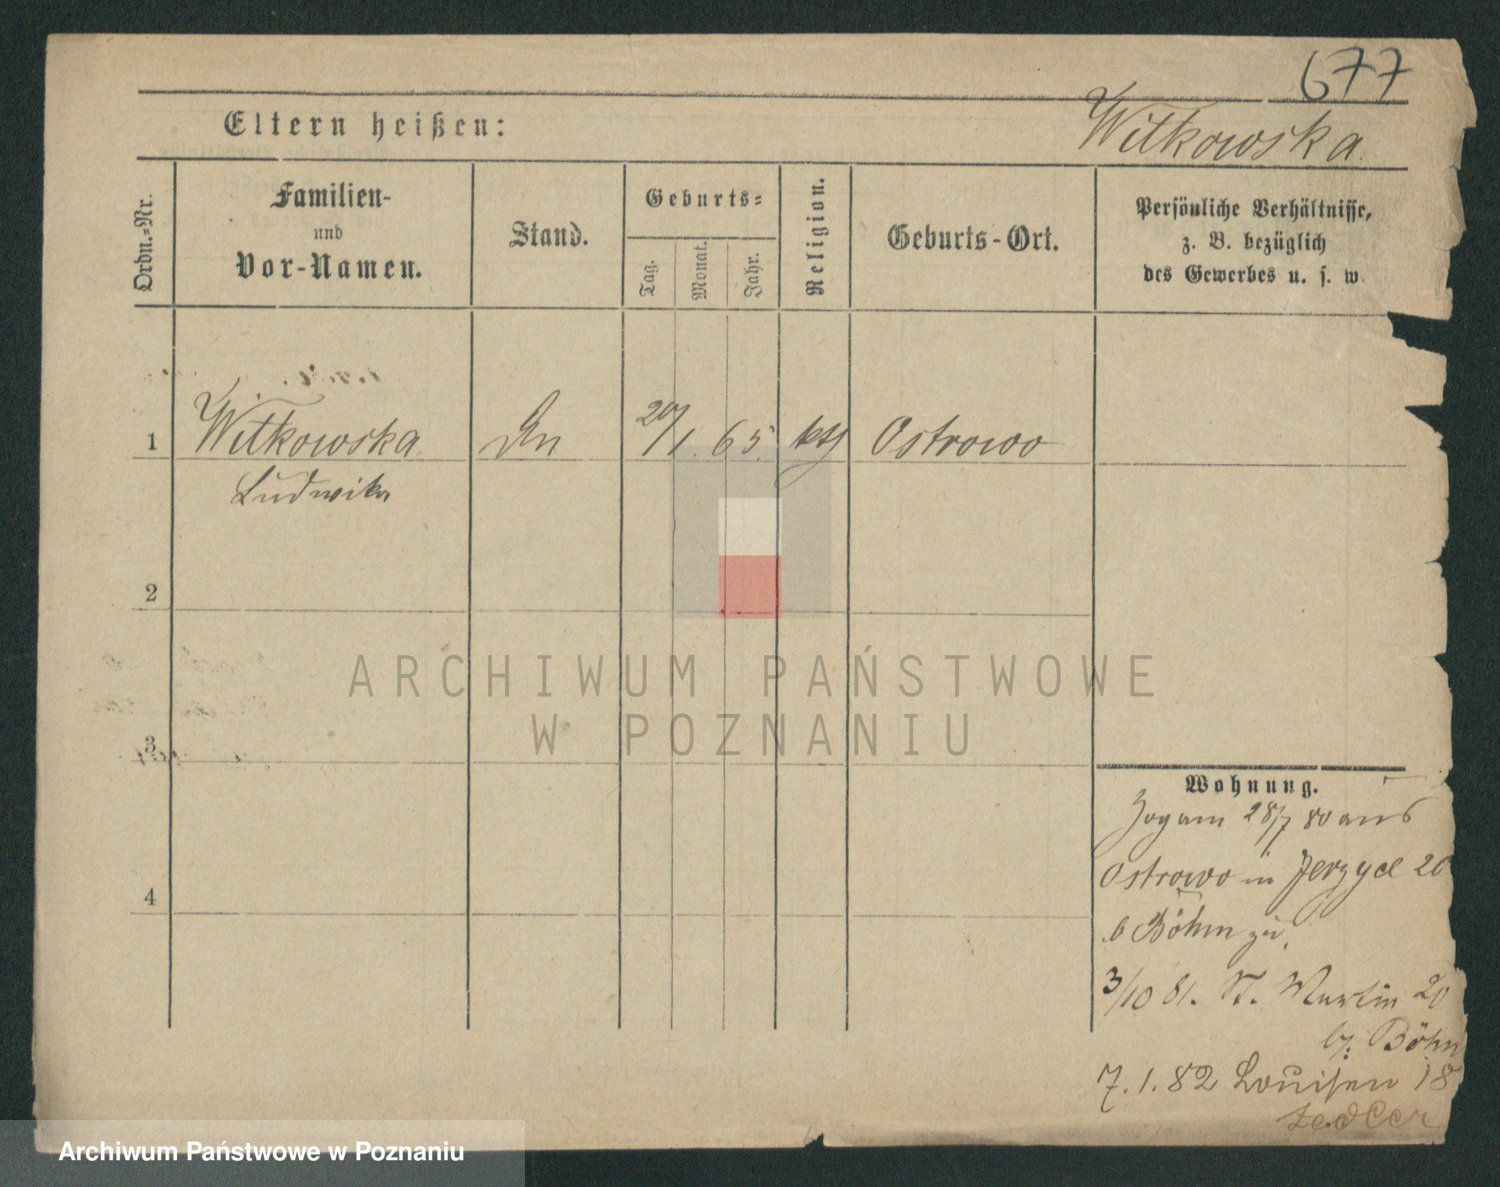 677
Eltern heißen:
Witkowska
Ordn.-Nr.
Familien-
und
Vor-Namen.
Stand.
Geburts-
Tag.
Monat.
Jahr.
Religion.
Geburts-Ort.
Persönliche Verhältnisse,
z. B. bezüglich
des Gewerbes u. s. w.
1 Witkowska 20/1. 65. kth Ostrowo
Ludwika
2
3
4
Wohnung.
Zog am 28/7 80 aus
Ostrowo in Jerzyce 20
b Böhm zu.
3/10 81. St. Martin 20
b. Böhm
7.1.82 Louisen 18
Zedler
ARCHIWUM PAŃSTWOWE
W POZNANIU
Archiwum Państwowe w Poznaniu